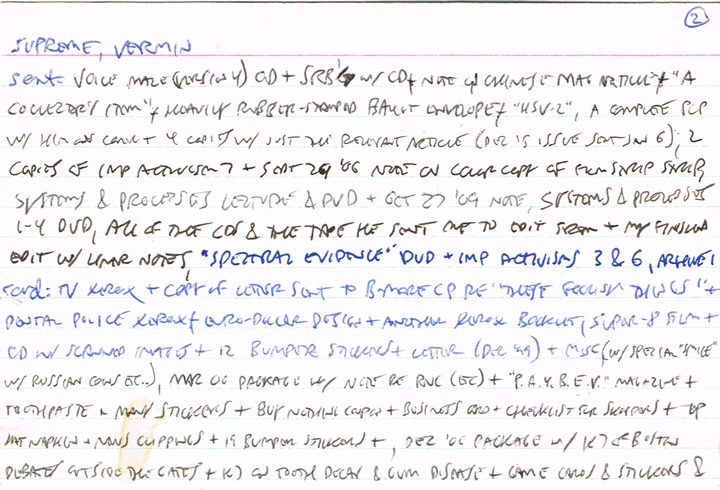 2
SUPREME, VERMIN
SENT: VOICE MAZE (VERSION 4) CD + SRB's w/ CD, NOTE w/ CHINESE MAG ARTICLE, "A
COLLECTOR'S ITEM", HEAVILY RUBBER-STAMPED BALLOT ENVELOPE, "HSV-2", A COMPLETE
w/ HIM ON COVER + 4 COPIES w/ JUST THE RELEVANT ARTICLE (DEC 15 ISSUE SENT JAN 6), 2
COPIES OF IMP ACTIVISM 7 + SEPT 29 '06 NOTE ON COLOR COPY OF FILM STRIP
SYSTEMS & PROCESSES LECTURE DVD + OCT 27 '09 NOTE, SYSTEMS & PROCESSES
1-4 DVD, ALL OF THE CDS & THE TAPE HE SENT ME TO EDIT FROM + MY FINISHED
EDIT w/ LINER NOTES, "SPECTRAL EVIDENCE" DVD + IMP ACTIVISM 3 & 6,
RCVD: TV XEROX + COPY OF LETTER SENT TO B-MORE CP RE "THESE FOOLISH THINGS" +
DENTAL POLICE XEROX, EURO-DOLLAR DESIGN + ANOTHER XEROX BOOKLET, SUPER-8 FILM +
CD w/ SCANNED IMAGES + 12 BUMPER STICKERS + LETTER (DEC '99) + MISC (w/ SPECIAL "SMILE"
w/ RUSSIAN COINS ETC..), MAR 06 PACKAGE w/ NOTE RE RNC (ETC) + "P.A.Y.B.E.V." MAGAZINE +
TOOTHPASTE + MANY STICKERS + BUY NOTHING COUPON + BUSINESS CARD + CHECKLIST FOR +
NAPKIN + NEWS CLIPPINGS + 19 BUMPER STICKERS +, DEC '06 PACKAGE w/ K7 OF BOSTON
DEBATES OUTSIDE THE GATES + K7 ON TOOTH DECAY & GUM DISEASE + GAME CARDS & STICKERS &